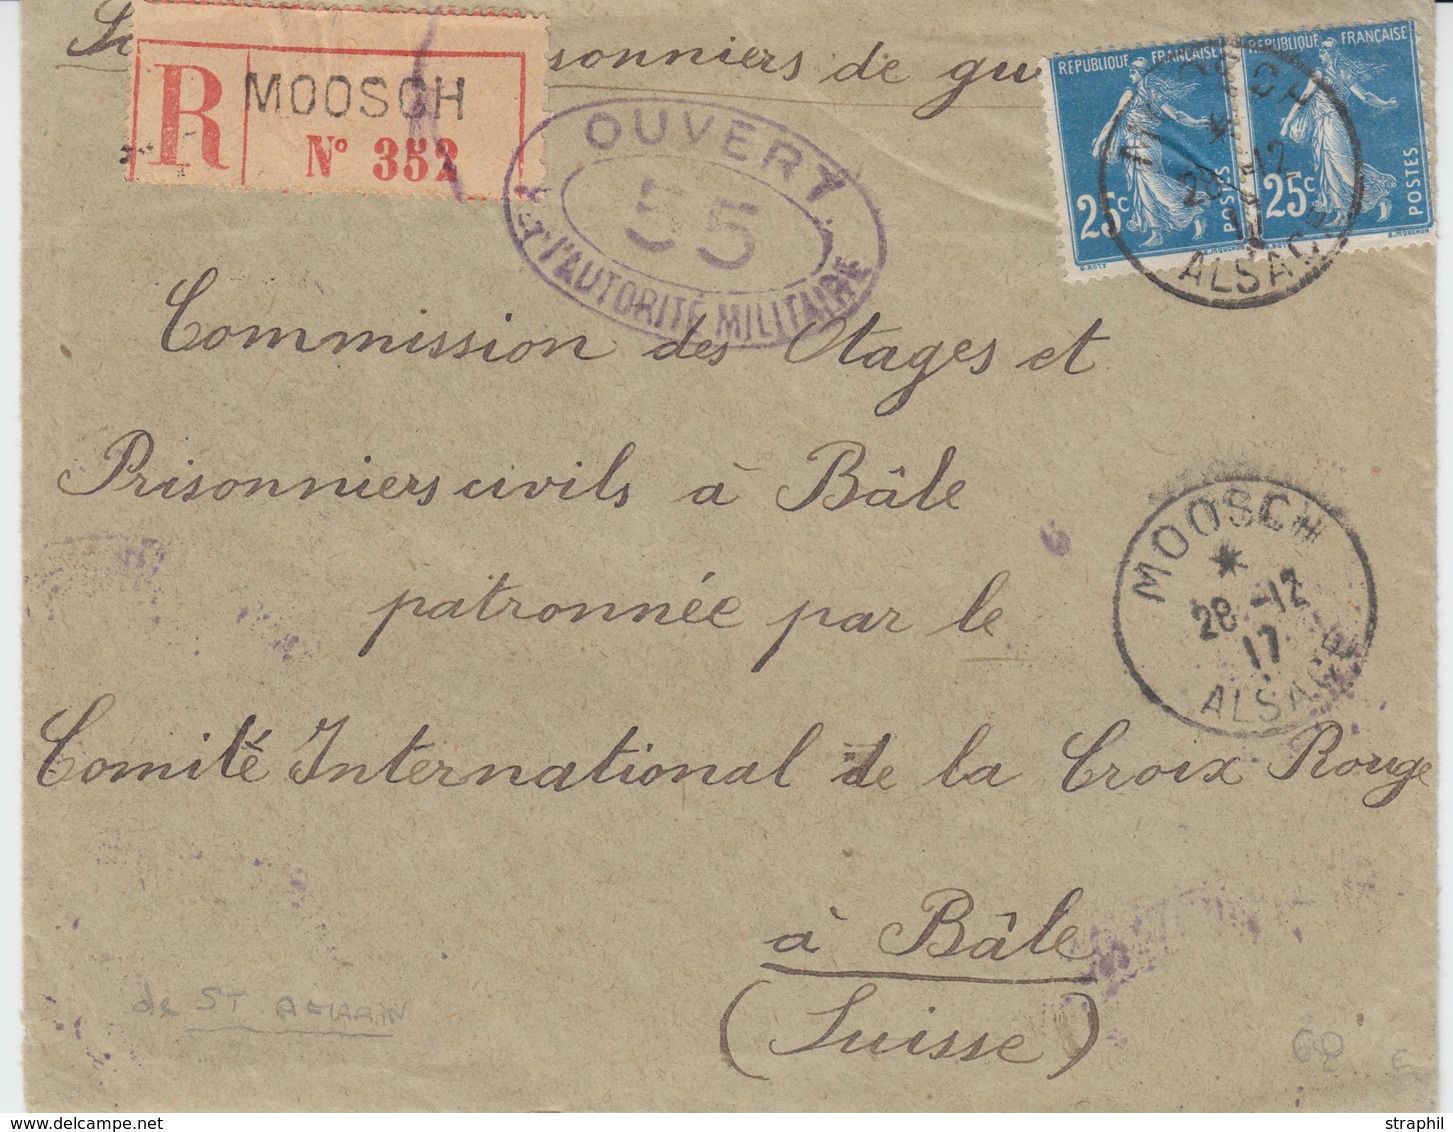 sonniers de gu
R MOOSCH
N° 352
OUVERT
55
l'AUTORITÉ MILITAIRE
REPUBLIQUE FRANÇAISE
25c POSTES
REPUBLIQUE FRANÇAISE
25c POSTES
MOOSCH
28 -12
17
ALSACE
Commission des Otages et
Prisonniers civils à Bâle
patronnée par le
MOOSCH
28 -12
17
ALSACE
Comité International de la Croix Rouge
à Bâle
(Suisse)
de ST AMARIN
60 €
starphil